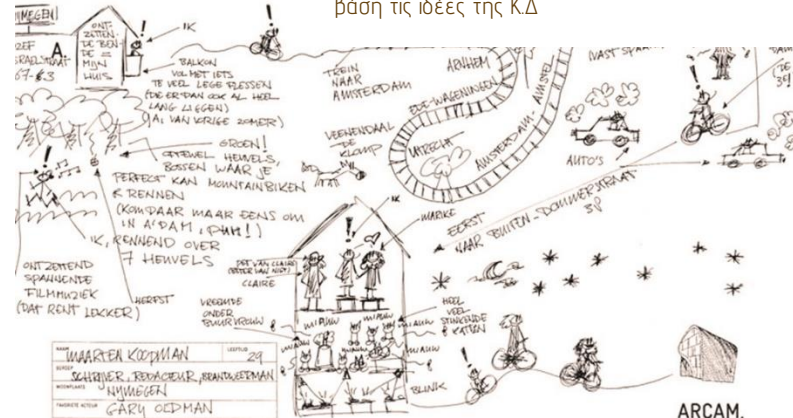 βάση τις ιδέες της Κ.Δ
NIJMEGEN
ONT-
ZETTEN-
DE BEN-
DE =
MIJN
HUIS
IK
A.
67-63
BALKON
VOL MET IETS
TE VEEL LEGE FLESSEN
(DE ER DAN OOK AL HEEL
LANG LIGGEN)
(AL VAN VORIGE ZOMER)
TREIN
NAAR
AMSTERDAM
ARNHEM
EDE-WAGENINGEN
VEENENDAAL
DE
KLOMP
UTRECHT
AMSTERDAM-AMSTEL
AUTO'S
GROEN!
OFTEWEL HEUVELS,
BOSSEN WAAR JE
PERFECT KAN MOUNTAINBIKEN
& RENNEN
(KOM DAAR MAAR EENS OM
IN A'DAM, PUH!)
IK, RENNEND OVER
7 HEUVELS
ONTZETTEND
SPANNENDE
FILMMUZIEK
(DAT RENT LEKKER)
HERFST
IK
MARIKE
EERST
NAAR BUITEN-DOMMERSTRAAT
38
CLAIRE
VREEMDE
ONDER
BUURVROUW
MIAUW
MIAUW
MIAUW
MIAUW
MIAUW
MIAUW
HEEL
VEEL
STINKENDE
KATTEN
BLINK
NAAM MAARTEN KOOPMAN LEEFTIJD 29
BEROEP SCHRIJVER, REDACTEUR, BRANDWEERMAN
WOONPLAATS NIJMEGEN
FAVORIETE ACTEUR GARY OLDMAN
ARCAM.